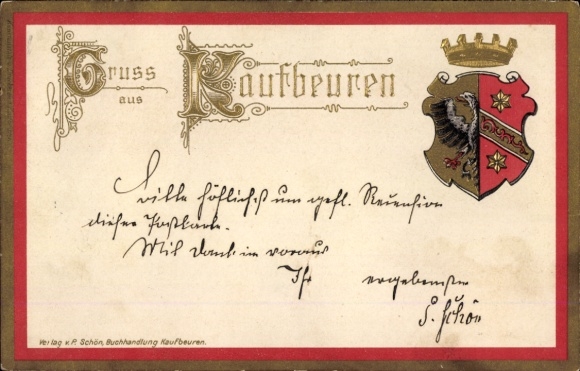 Gruss
aus
Kaufbeuren
Bitte höflichst um gefl. Recension
dieser Postkarte.
Mit Dank im voraus
Ihr ergebenster
P. Schön
Verlag v. P. Schön, Buchhandlung Kaufbeuren.